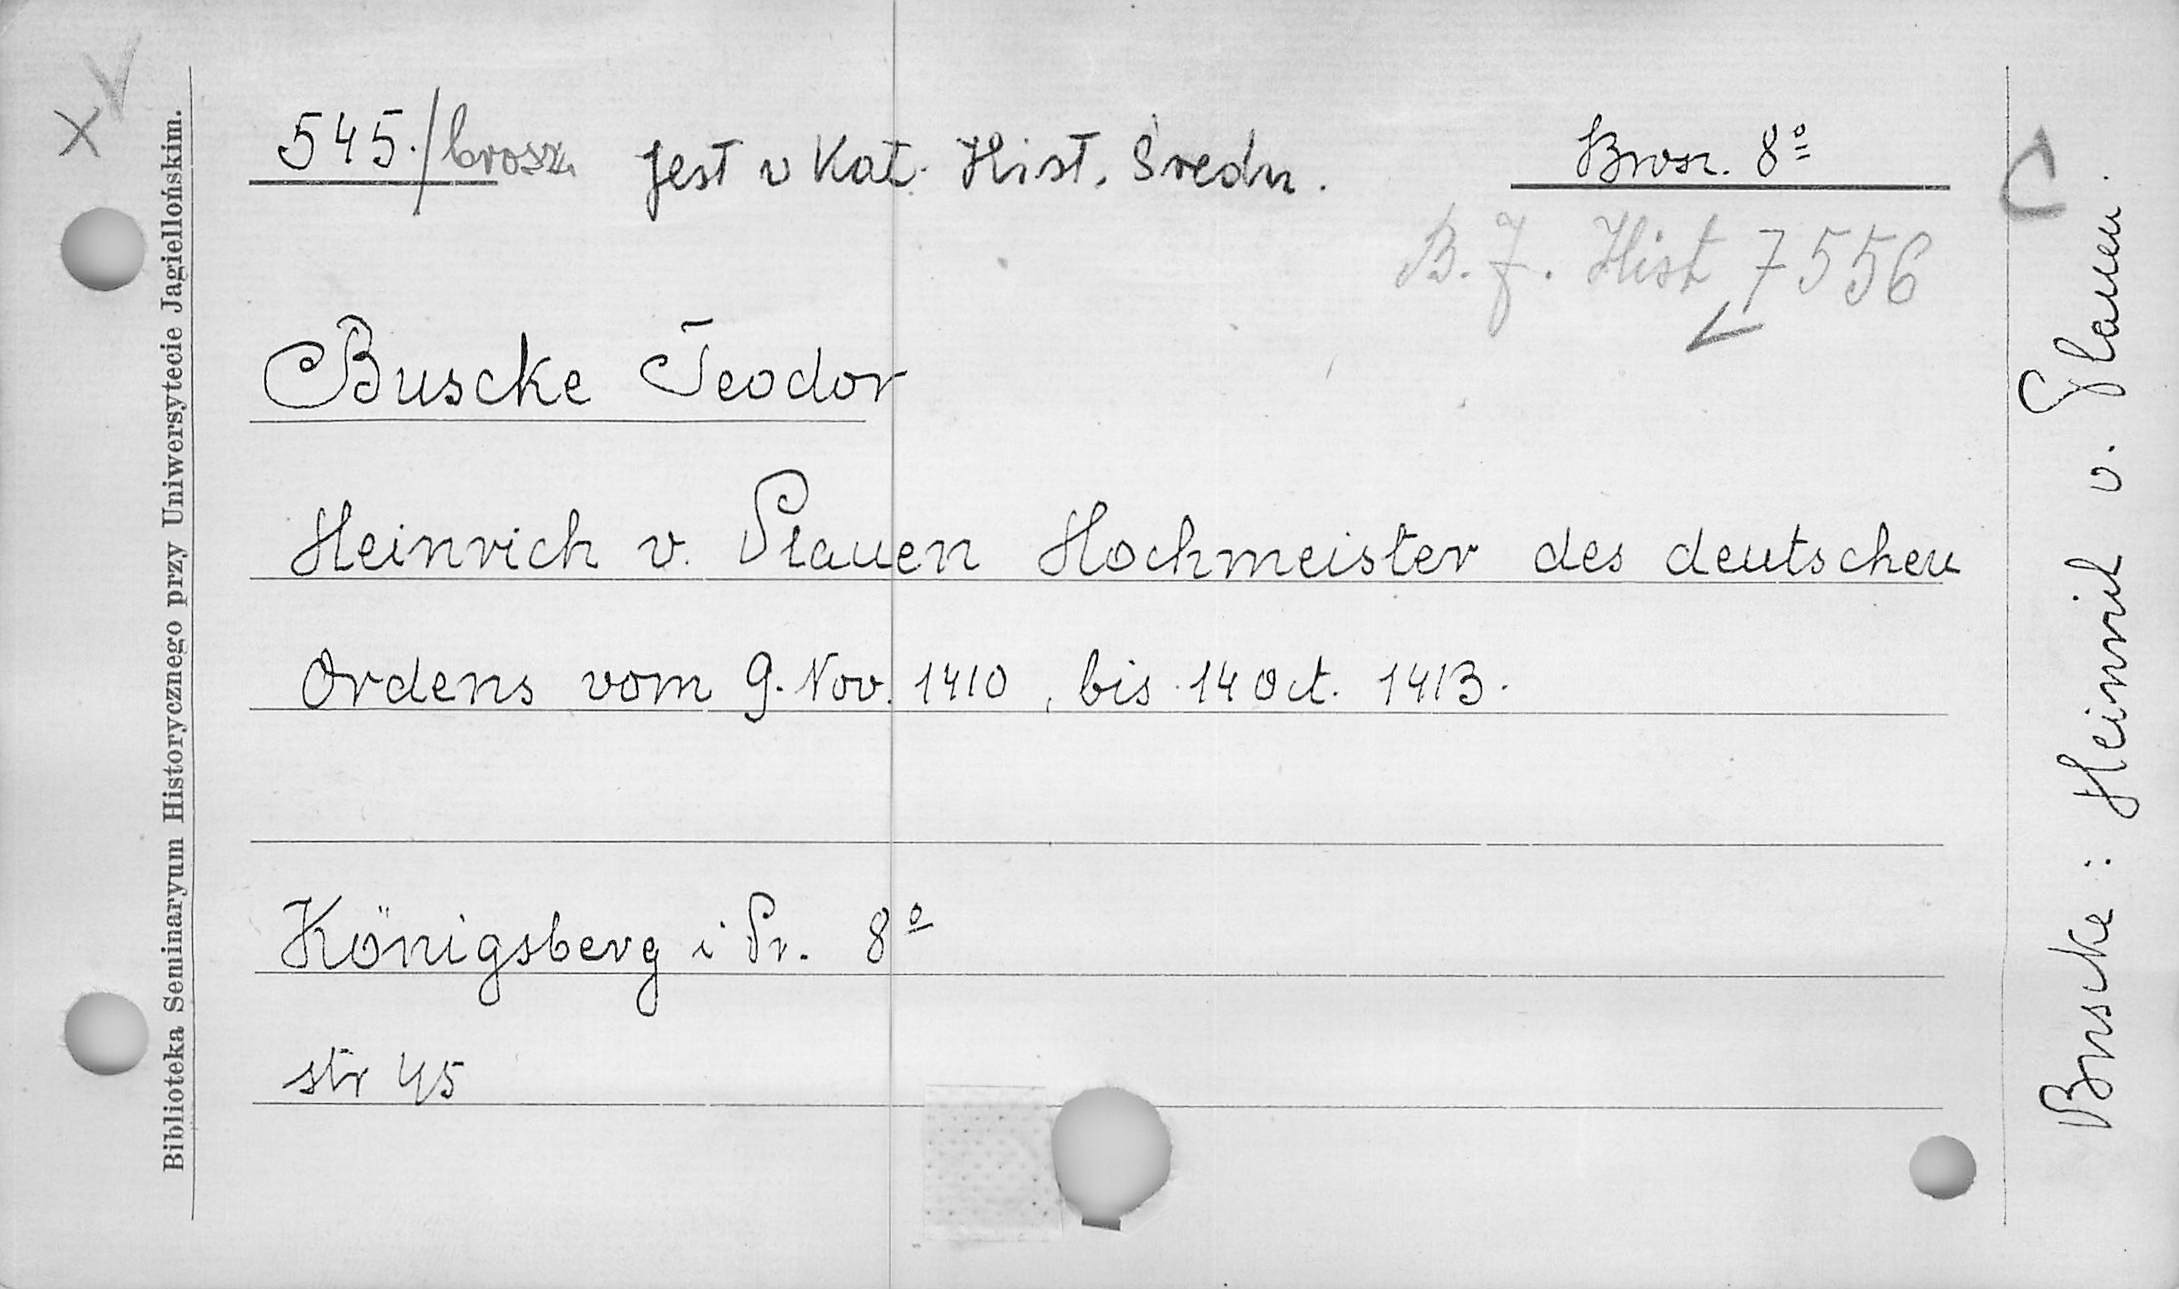 545./brosz. Jest v Kat. Hist. Średn.
Brosz. 8º
B. J. Hist 7556
Buscke Teodor
Heinrich v. Plauen Hochmeister des deutschen
Ordens vom 9. Nov. 1410, bis 14 Oct. 1413.
Königsberg i Pr. 8º
str 45
Biblioteka Seminaryum Historycznego przy Uniwersytecie Jagiellońskim.
C
Buscke: Heinrich v. Plauen.